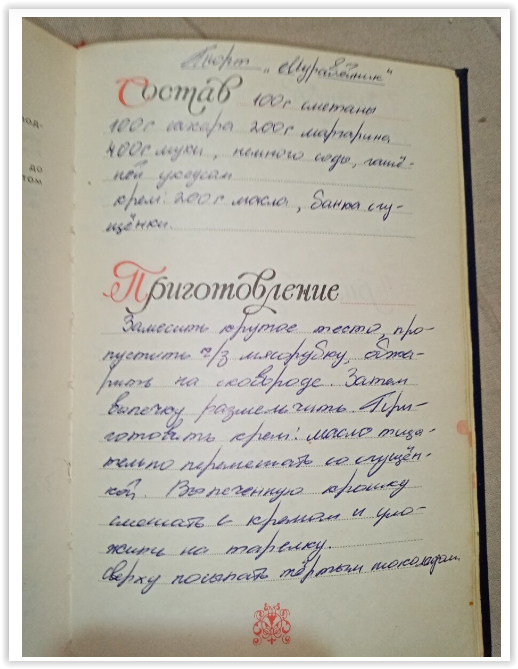 Торт „Муравейник“
Состав 100 г сметаны
100 г сахара 200 г маргарина
400 г муки, немного соды, гашё-
ной уксусом
крем: 200 г масла, банка сгу-
щёнки.
Приготовление
Замесить крутое тесто, про-
пустить ч/з мясорубку, обжа-
рить на сковороде. Затем
выпечку размельчить. При-
готовить крем: масло тща-
тельно перемешать со сгущён-
кой. Выпеченную крошку
смешать с кремом и уло-
жить на тарелку.
Сверху посыпать тёртым шоколадом.
до
том